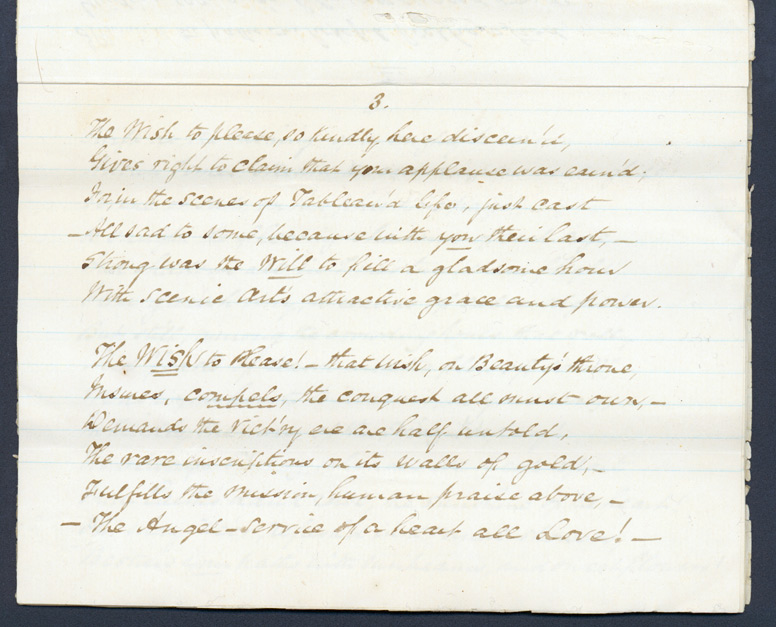 3.
The Wish to please, so kindly, here discern'd,
Gives right to claim that your applause was earn'd;
For in the scenes of Tableau'd life, just cast
— All sad to some, because with you their last, —
Strong was the Will to fill a gladsome hour
With Scenic Art's attractive grace and power.
The Wish to Please! — that wish, on Beauty's throne,
Insures, compels, the conquest all must own, —
Demands the vict'ry ere are half untold,
The rare inscriptions on its walls of gold, —
Fulfills the mission, human praise above, —
— The Angel-service of a heart all Love! —